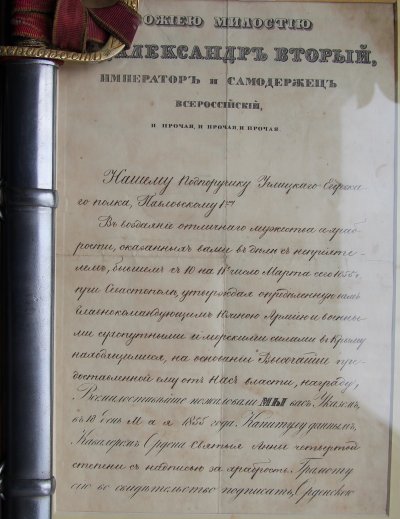 БОЖІЕЮ МИЛОСТІЮ
АЛЕКСАНДРЪ ВТОРЫЙ,
ИМПЕРАТОРЪ и САМОДЕРЖЕЦЪ
ВСЕРОССІЙСКІЙ,
И ПРОЧАЯ, И ПРОЧАЯ, И ПРОЧАЯ.
Нашему Подпоручику Углицкаго Егерска-
го полка, Павловскому 1му
Въ воздаяніе отличнаго мужества и храб-
рости, оказанныхъ вами въ дѣлѣ съ непріяте-
лемъ, бывшемъ съ 10 на 11е число Марта сего 1855 г.
при Севастополѣ, утверждая опредѣленную вамъ
Главнокомандующимъ Южною Арміею и военны-
ми сухопутными и морскими силами въ Крыму
находящимися, на основаніи Высочайше пре-
доставленной ему отъ НАСЪ власти, награду,
Всемилостивѣйше пожаловали МЫ васъ, Указомъ,
въ 18 день Мая 1855 года Капитулу даннымъ,
Кавалеромъ Ордена Святыя Анны четвертой
степени съ надписью за храбрость. Грамоту
сію во свидѣтельство подписать, Орденскою